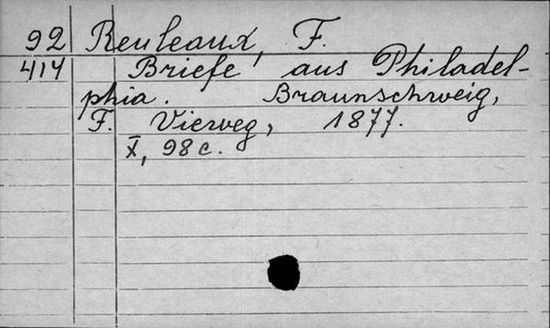 92 Reuleaux, F.
414 Briefe aus Philadel-
phia. Braunschweig,
F. Vierveg, 1877.
X, 98 c.